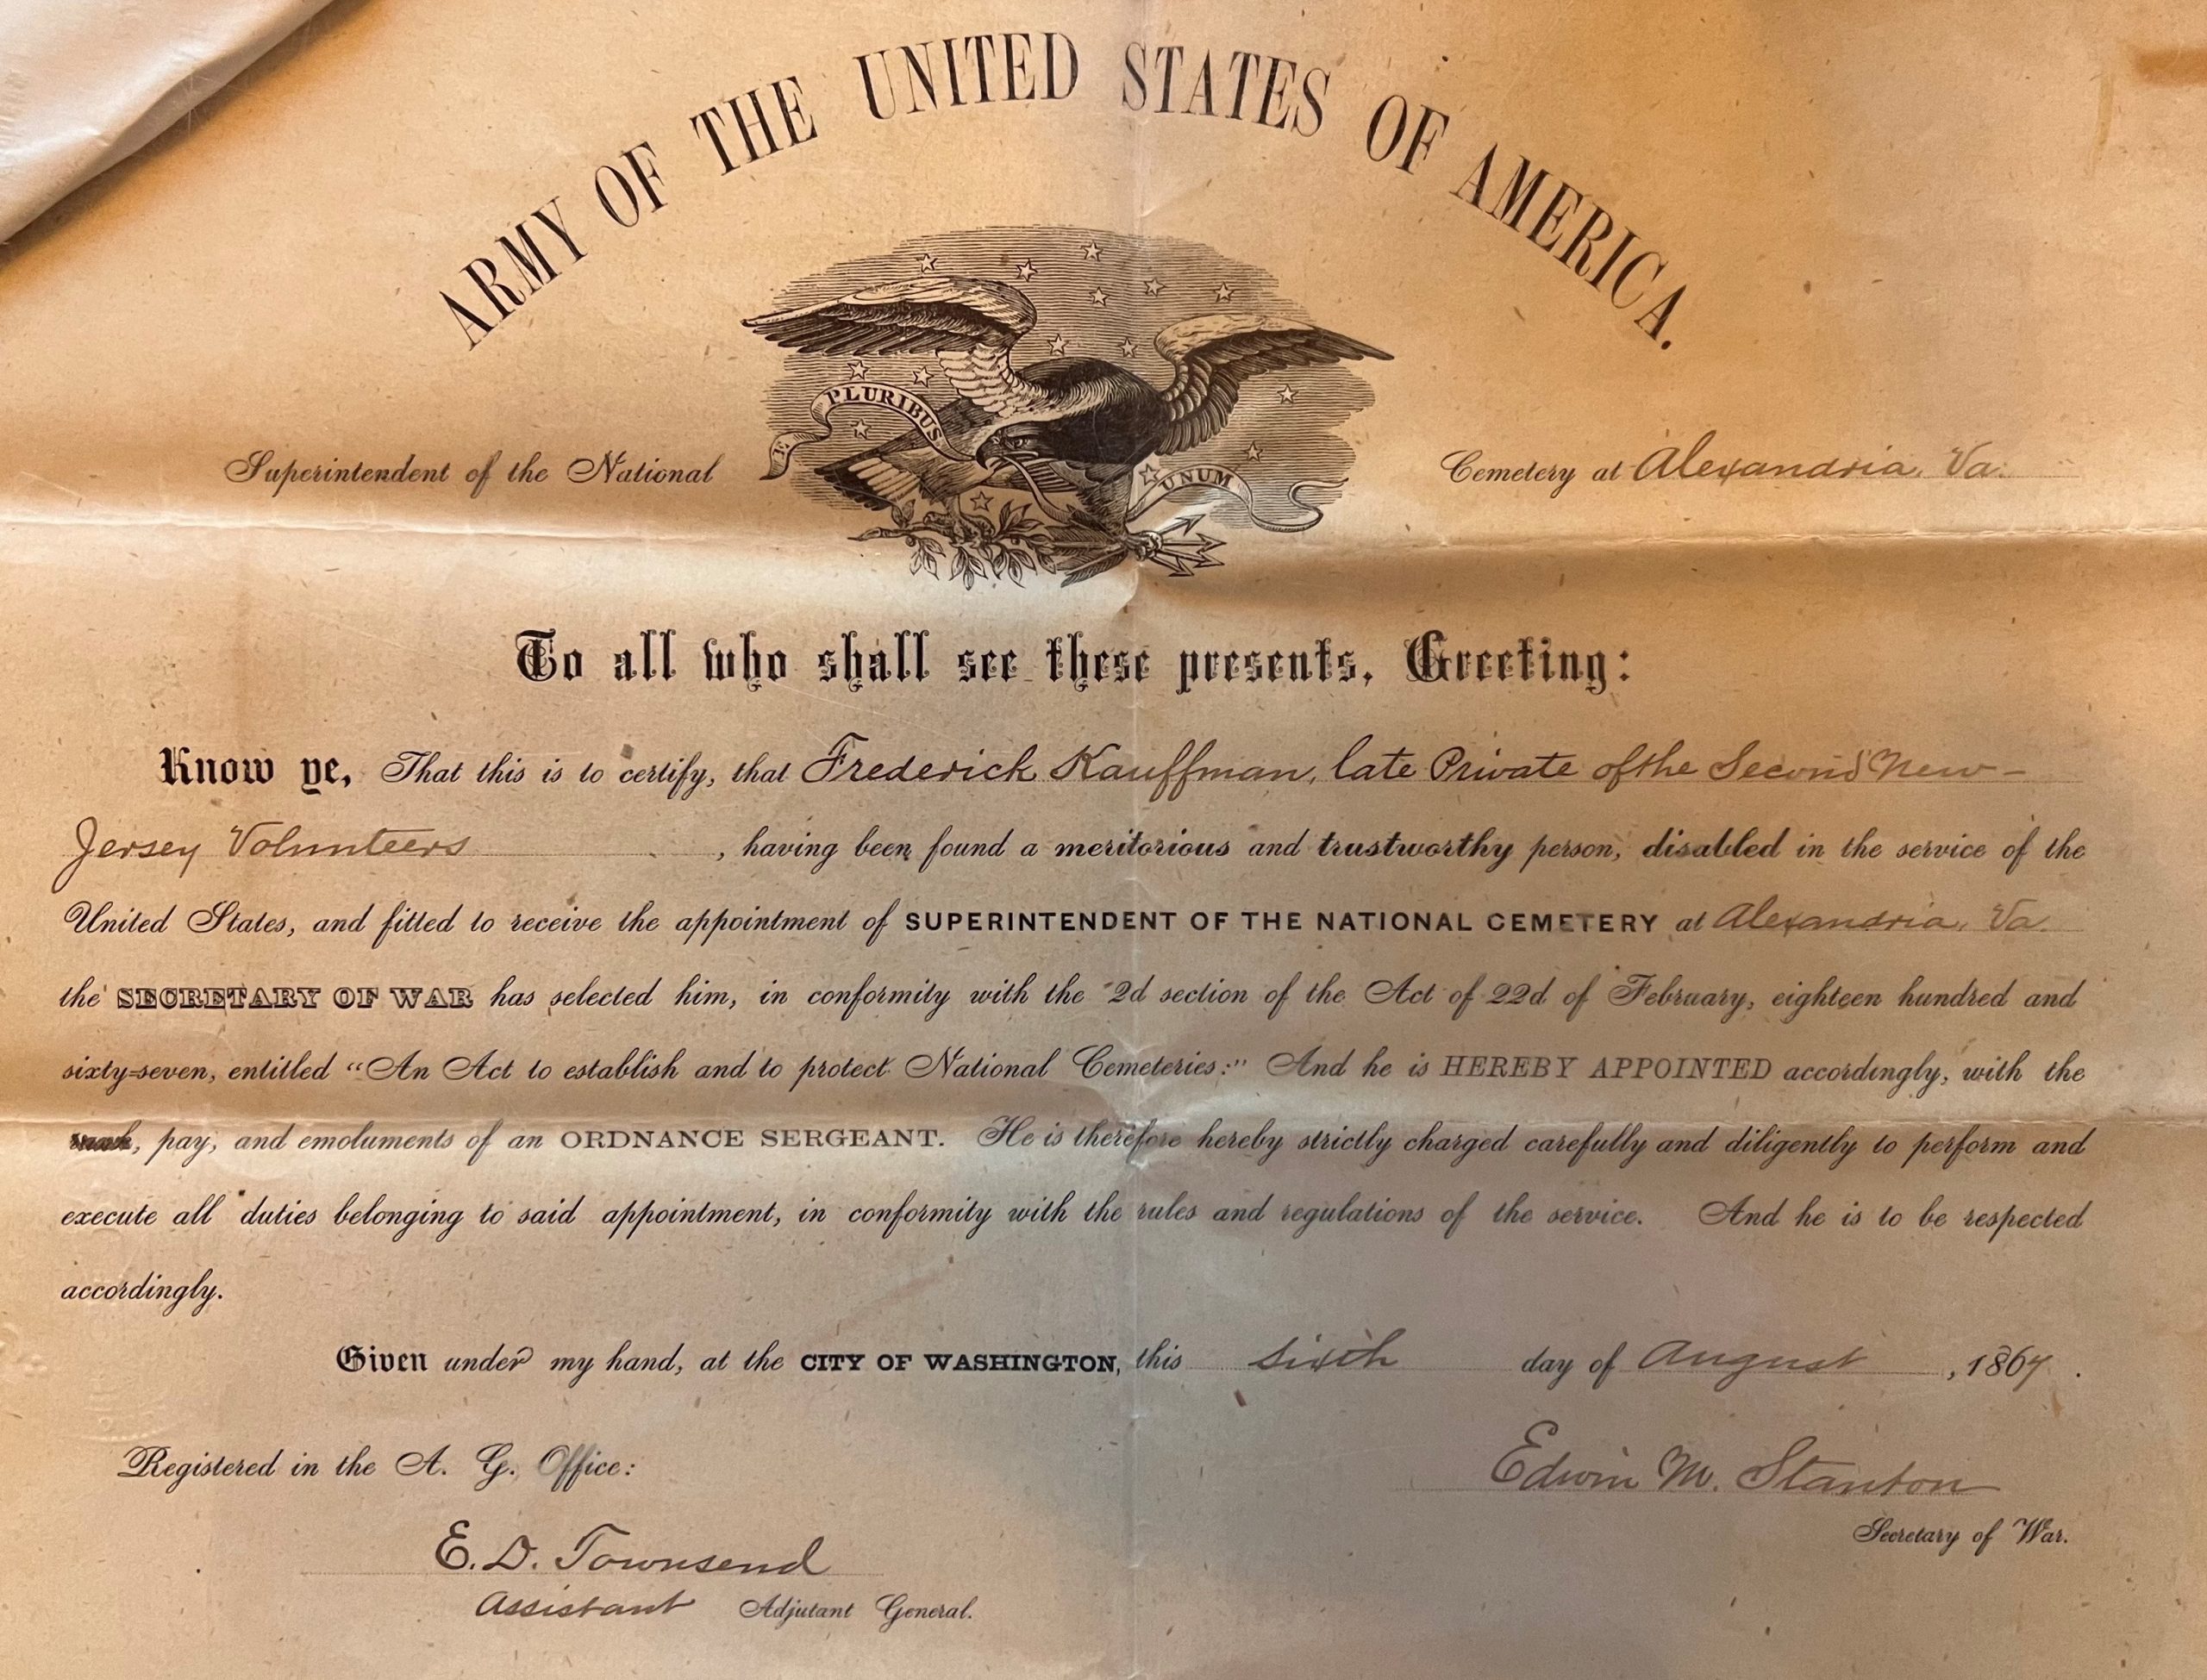 ARMY OF THE UNITED STATES OF AMERICA.
E PLURIBUS UNUM
Superintendent of the National Cemetery at Alexandria, Va.
To all who shall see these presents, Greeting:
Know ye, That this is to certify, that Frederick Kauffman, late Private of the Second New-
Jersey Volunteers, having been found a meritorious and trustworthy person, disabled in the service of the
United States, and fitted to receive the appointment of SUPERINTENDENT OF THE NATIONAL CEMETERY at Alexandria, Va.
the SECRETARY OF WAR has selected him, in conformity with the 2d section of the Act of 22d of February, eighteen hundred and
sixty-seven, entitled "An Act to establish and to protect National Cemeteries:" And he is HEREBY APPOINTED accordingly, with the
, pay, and emoluments of an ORDNANCE SERGEANT. He is therefore hereby strictly charged carefully and diligently to perform and
execute all duties belonging to said appointment, in conformity with the rules and regulations of the service. And he is to be respected
accordingly.
Given under my hand, at the CITY OF WASHINGTON, this sixth day of August, 1867.
Registered in the A. G. Office:
Edwin M. Stanton
Secretary of War.
E. D. Townsend
Assistant Adjutant General.